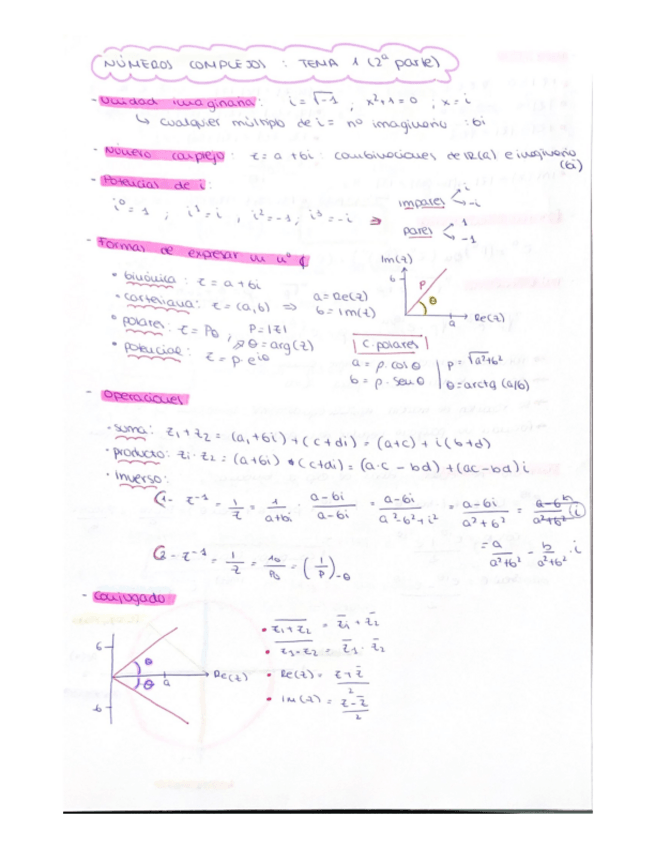 NÚMEROS COMPLEJOS : TEMA 1 (2ª parte)
- Unidad imaginaria : i = √-1 ; x²+1=0 ; x=i
↳ cualquier múltiplo de i = nº imaginario : bi
- Número complejo : z = a + bi : combinaciones de IR(a) e imaginario (bi)
- Potencias de i :
i⁰ = 1 ; i¹ = i , i² = -1 ; i³ = -i ⇒
impares < i
-i
pares < 1
-1
- Formas de expresar un nº ₵
• binómica : z = a + bi
• cartesiana : z = (a,b) ⇒ a = Re(z)
b = Im(z)
• polares : z = Pθ , P = |z|
θ = arg(z)
• potencial : z = p · e^iθ
Im(z)
b
P
θ
a
Re(z)
C. polares
a = p · cos θ
b = p · sen θ
p = √a²+b²
θ = arctg (a/b)
- Operaciones
· suma : z₁ + z₂ = (a,+bi) + (c+di) = (a+c) + i(b+d)
· producto : z₁ · z₂ = (a+bi) • (c+di) = (a·c - bd) + (ac-bd) i
· inverso :
1- z⁻¹ = 1/z = 1/a+bi · a-bi/a-bi = a-bi/a²-b²+i² = a-bi/a²+b² =
= a/a²+b² - b/a²+b² · i
2- z⁻¹ = 1/z = 1₀/Pθ = (1/P)-θ
- Conjugado
b
θ
θ
a
Re(z)
-b
• z₁+z₂ = z̄₁ + z̄₂
• z₁·z₂ = z̄₁ · z̄₂
• Re(z) = z+z̄/2
• Im(z) = z-z̄/2